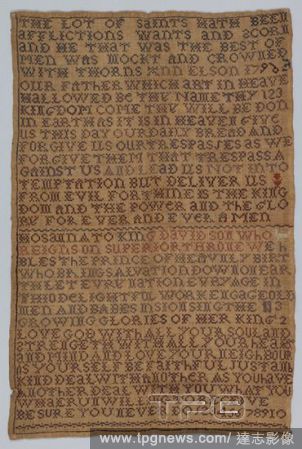 THE LOT OF SAINTS HATH BEEN
AFFLICTIONS WANTS AND SCORN
AND HE THAT WAS THE BEST OF
MEN WAS MOCKT AND CROWNED
WITH THORNS ANN ELSON 17
OUR FATHER WHICH ART IN HEAVE
HALLOWED BE THY NAME THY 123
KINGDOM COME THY WILL BE DON
IN EARTH AS IT IS IN HEAVEN GIVE
US THIS DAY OUR DAILY BREAD AND
FORGIVE US OUR TRESPASSES AS WE
FORGIVE THEM THAT TRESPASS A
GAINST US AND LEAD US NOT IN TO
TEMPTATION BUT DELIVER US
FROM EVIL FOR THINE IS THE KING
DOM AND THE POWER AND THE GLO
RY FOR EVER AND EVER AMEN
HOSANNA TO KING DAVIDS ON WHO
REIGNS ON SUPERIOR THRONE WE
BLES THE PRINCE OF HEAVENLY BIRTH
WHO BRINGS SALVATION DOWN EAR
TH LET EVRY NATION EVRY AGE IN
THIS DELIGHTFUL WORK ENGAGE OLD
MEN AND BABES IN SION SING THE
GROWING GLORIES OF HER KING
LOVE GOD WITH ALL YOUR SOUL AND
STRENGTH WITH ALL YOUR HEART
AND MIND AND LOVE YOUR NEIGHBOUR
AS YOURSELF BE FAITHFUL JUST AND
KIND DEAL WITH ANOTHER AS YOU HAVE
ANOTHER DEAL WITH YOU WHAT
BE SURE YOU NEVER DO 78910
TPG
www.tpgnews.com / 達志影像